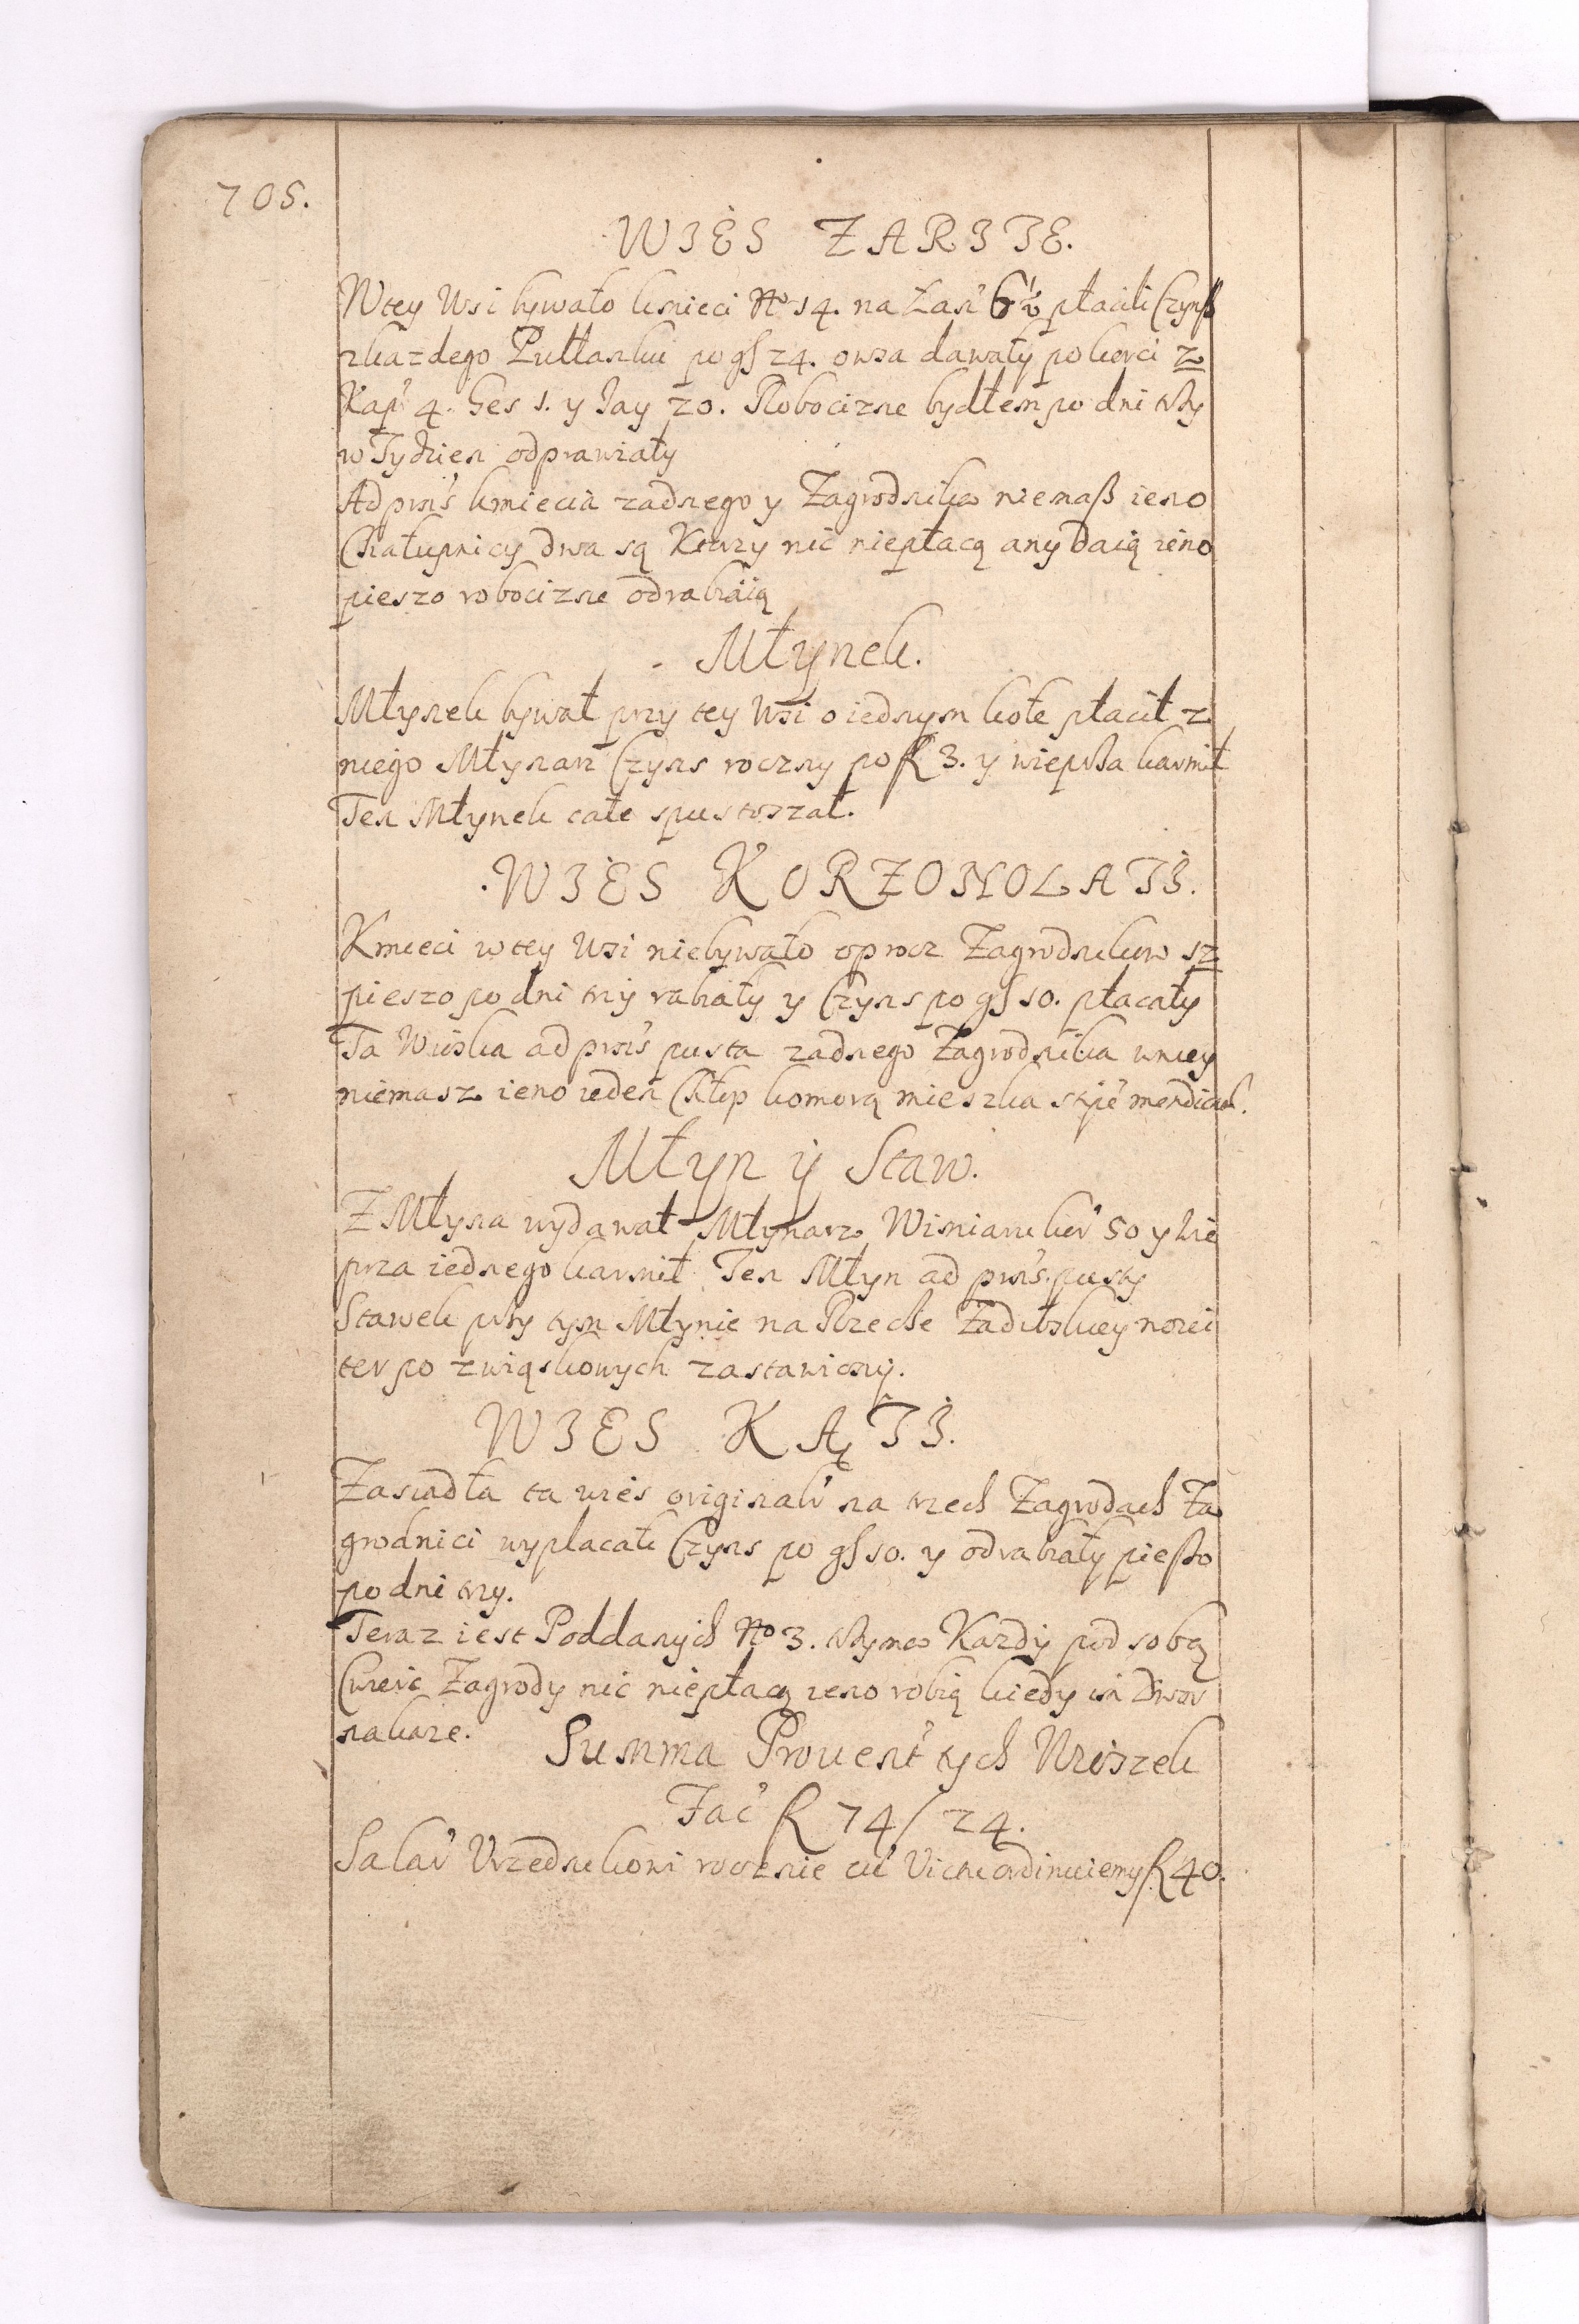 705.
WIES ZARZTE.
W tey Wsi bywało kmieci No 14. na Łań 6½ płacili Czynß
z kazdego Pułłanku po gſ 24. owsa dawały po korci 2
Kap' 4. Ges 1. y Jay 20. Robocizne bydłem po dni trzy
w Tydzien odprawiały
Ad prns kmiecia zadnego y Zagrodnika niemaß ieno
Chałupnicy dwa są Ktorzy nic niepłacą any daią ieno
pieszo robocizne odrabiaią
Młynek.
Młynek bywał przy tey Wsi o iednym kole płacił z
niego Młynarz Czyns roczny po f 3. y wieprza karmił
Ten Młynek cale spustoszał.
WIES KORZONOLATY.
Kmieci w tey Wsi niebywało oprocz Zagrodnikow 12
pieszo po dni trzy rabiały y Czyns po gſ 10. płacały
Ta Wioska ad prns pusta zadnego Zagrodnika w niey
niemasz ieno ieden Chłop komorą mieszka
Młyn y Staw.
Z Młyna wydawał Młynarz 50 y wie
prza iednego karmił Ten Młyn ad prns. pusty
Stawek przy tym Młynie na Rzecze
ter po związkowych zastawiony.
WIES KĄTY.
Zasiadła ta wies original' na trzech Zagrodach Za
grodnici wyplacali Czyns po gſ 10. y odrabiały pießo
po dni trzy.
Teraz iest Poddanych No 3. trzyma Kazdy pod sobą
Cwierc Zagrody nic niepłacą ieno robią kiedy im Dwor
nakaze.
Summa Prouent' tych Wioszek
Fac' f 74/24.
Salar' Vrzednikowi rocznie cu' Victu ordinuiemy f 40.